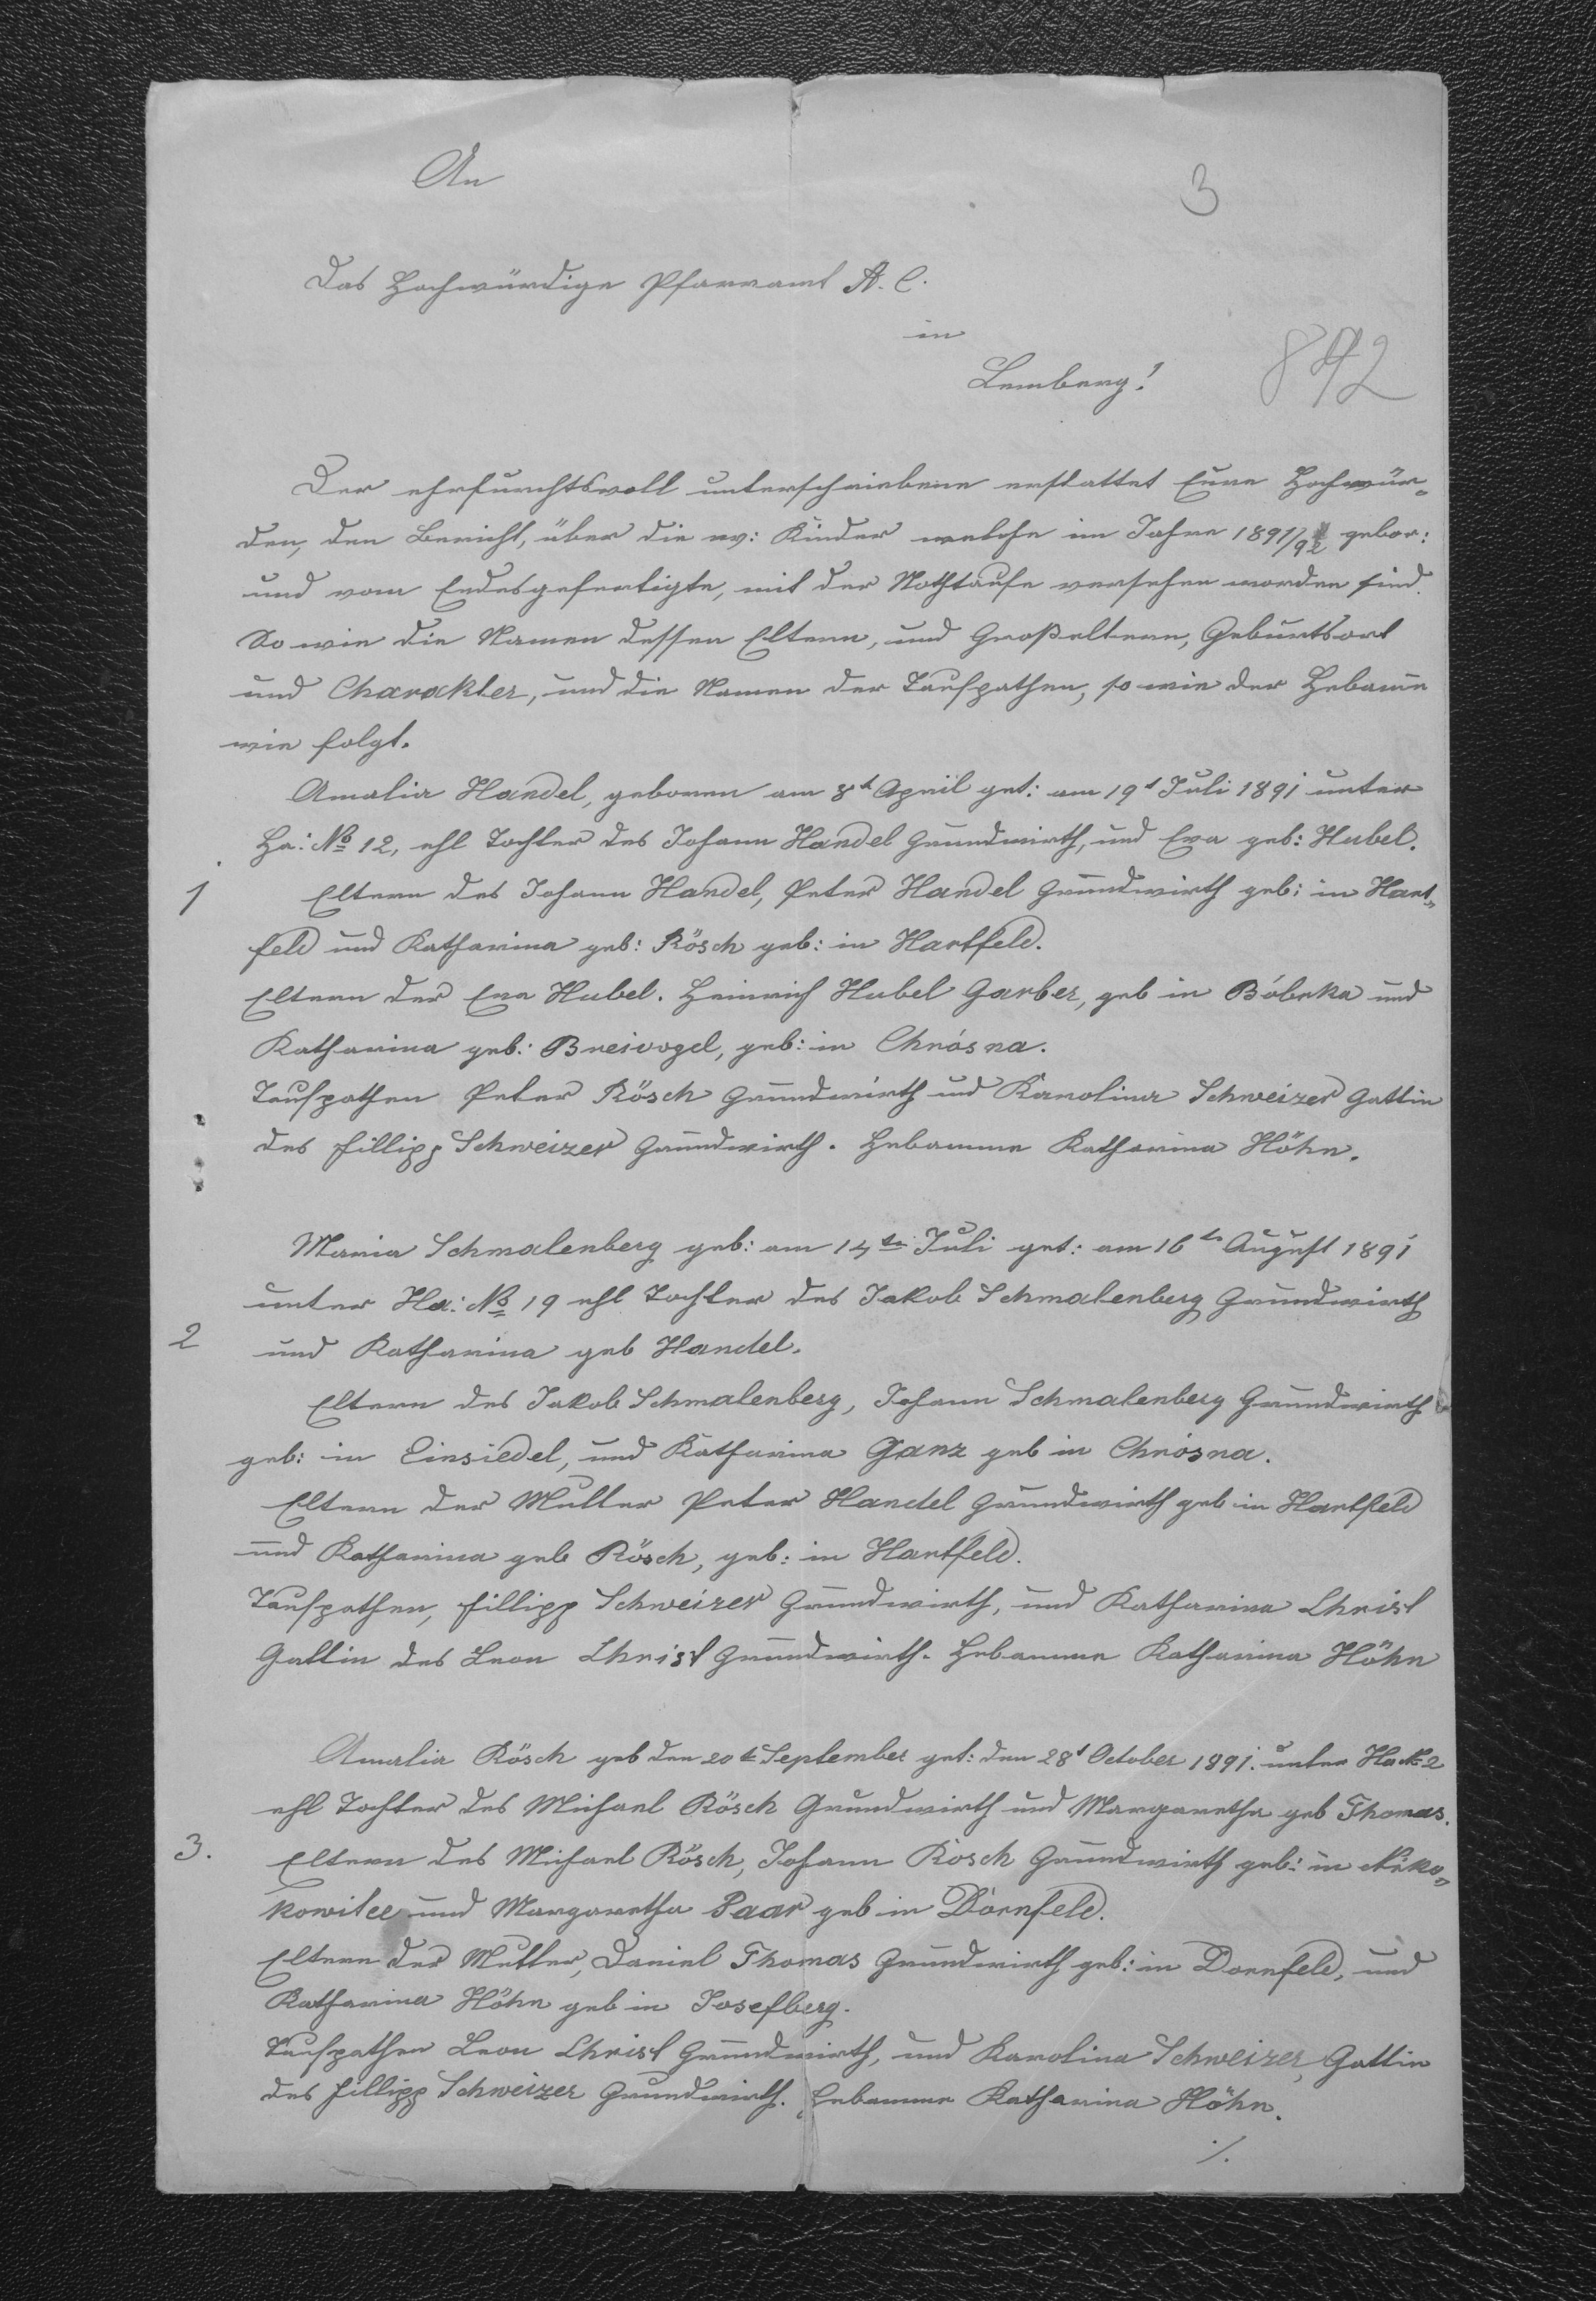 An
3
Das Hochwürdige Pfarramt A. C.
in
Lemberg!
892
Der ehrfurchtsvoll unterschriebene erstattet Eure Hochwür-
den, den Bericht, über die ev: Kinder welche im Jahre 1891/92 gebor:
und vom Endesgefertigte, mit der Nothtaufe versehen worden sind.
So wie die Namen dessen Eltern, und Großeltern, Geburtsort
und Charakter, und die Namen der Taufpathen, so wie der Hebame
wie folgt.
Amalia Handel, geboren am 8t April get: am 19t Juli 1891 unter
Ha: No 12, ehl Tochter des Johann Handel Grundwirth, und Eva geb: Hubel.
1 Eltern des Johann Handel, Peter Handel Grundwirth geb: in Hart-
feld und Katharina geb: Rösch geb: in Hartfeld.
Eltern der Eva Hubel. Heinrich Hubel Garber, geb in Bóbrka und
Katharina geb: Breivogel, geb: in Chrósna.
Taufpathen Peter Rösch Grundwirth und Karolina Schweizer Gattin
des Fillipp Schweizer Grundwirth. Hebamme Katharina Höhn.
Maria Schmalenberg geb: am 14tn Juli get: am 16tn August 1891
unter Ha: No 19 ehl Tochter des Jakob Schmalenberg Grundwirth
2 und Katharina geb Handel.
Eltern des Jakob Schmalenberg, Johann Schmalenberg Grundwirth
geb: in Einsiedel, und Katharina Ganz geb in Chrósna.
Eltern der Mutter Peter Handel Grundwirth geb in Hartfeld
und Katharina geb Rösch, geb: in Hartfeld.
Taufpathen, Fillipp Schweizer Grundwirth, und Katharina Christ
Gattin des Leon Christ Grundwirth. Hebamme Katharina Höhn
Amalia Rösch geb den 20t September get: den 28t October 1891. unter Ha No 2
ehl Tochter des Michael Rösch Grundwirth und Margaretha geb Thomas.
3. Eltern des Michael Rösch, Johann Rösch Grundwirth geb: in
und Margaretha Paar geb in Dornfeld.
Eltern der Mutter, Daniel Thomas Grundwirth geb: in Dornfeld, und
Katharina Höhn geb in Josefberg.
Taufpathen Leon Christ Grundwirth, und Karolina Schweizer, Gattin
des Fillipp Schweizer Grundwirth. Hebamme Katharina Höhn.
./.